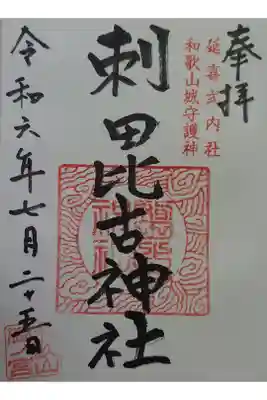 奉拝
延喜式内社
和歌山城守護神
刺田比古神社
令和六年七月二十五日